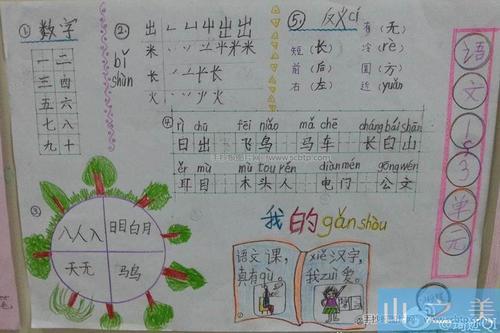 ① 数字
一 二
三 四
五 六
七 八
九 十
② 笔顺
bǐ
shùn
出
米
长
火
⑤ 反义cí
有（无）
短（长） 冷（rè）
前（后） 圆（方）
右（左） 近（yuǎn）
④
rì chū fēi niǎo mǎ chē cháng bái shān
日出 飞鸟 马车 长白山
ěr mù mù tou rén diàn mén gōng wén
耳目 木头人 电门 公文
③
八人入 日目白月
天无 马鸟
我的gǎn shòu
语文课，
真有qù。
xiě汉字，
我zuì爱。
语
文
1
3
单
元
山之美